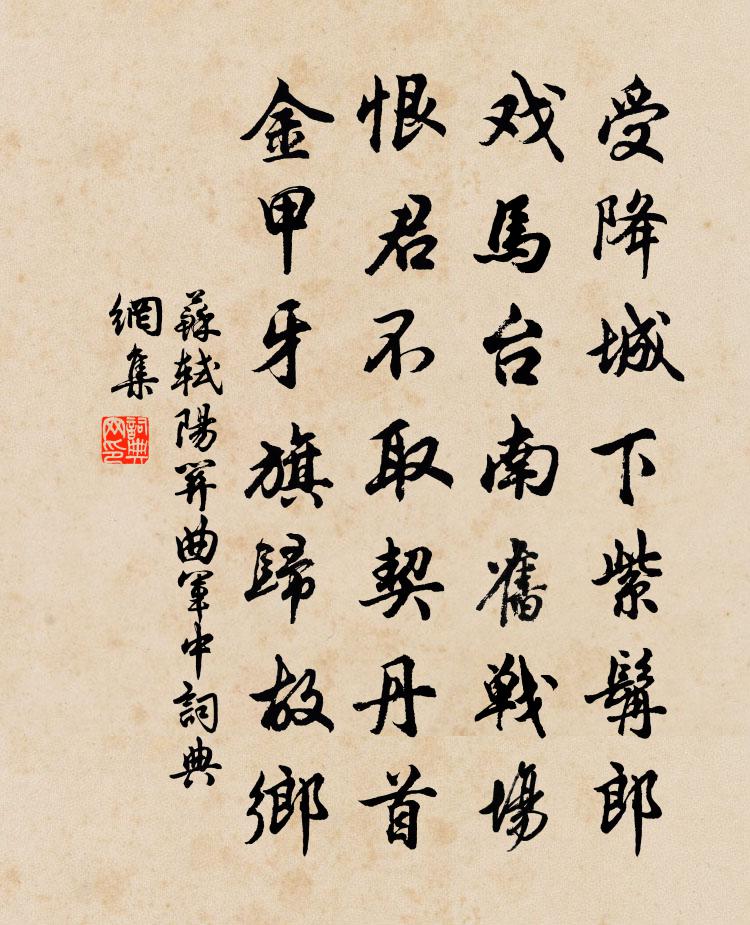 受降城下紫髯郎
戏馬台南舊戰場
恨君不取契丹首
金甲牙旗歸故鄉
蘇軾陽關曲軍中詞典
網集
詞典
网印